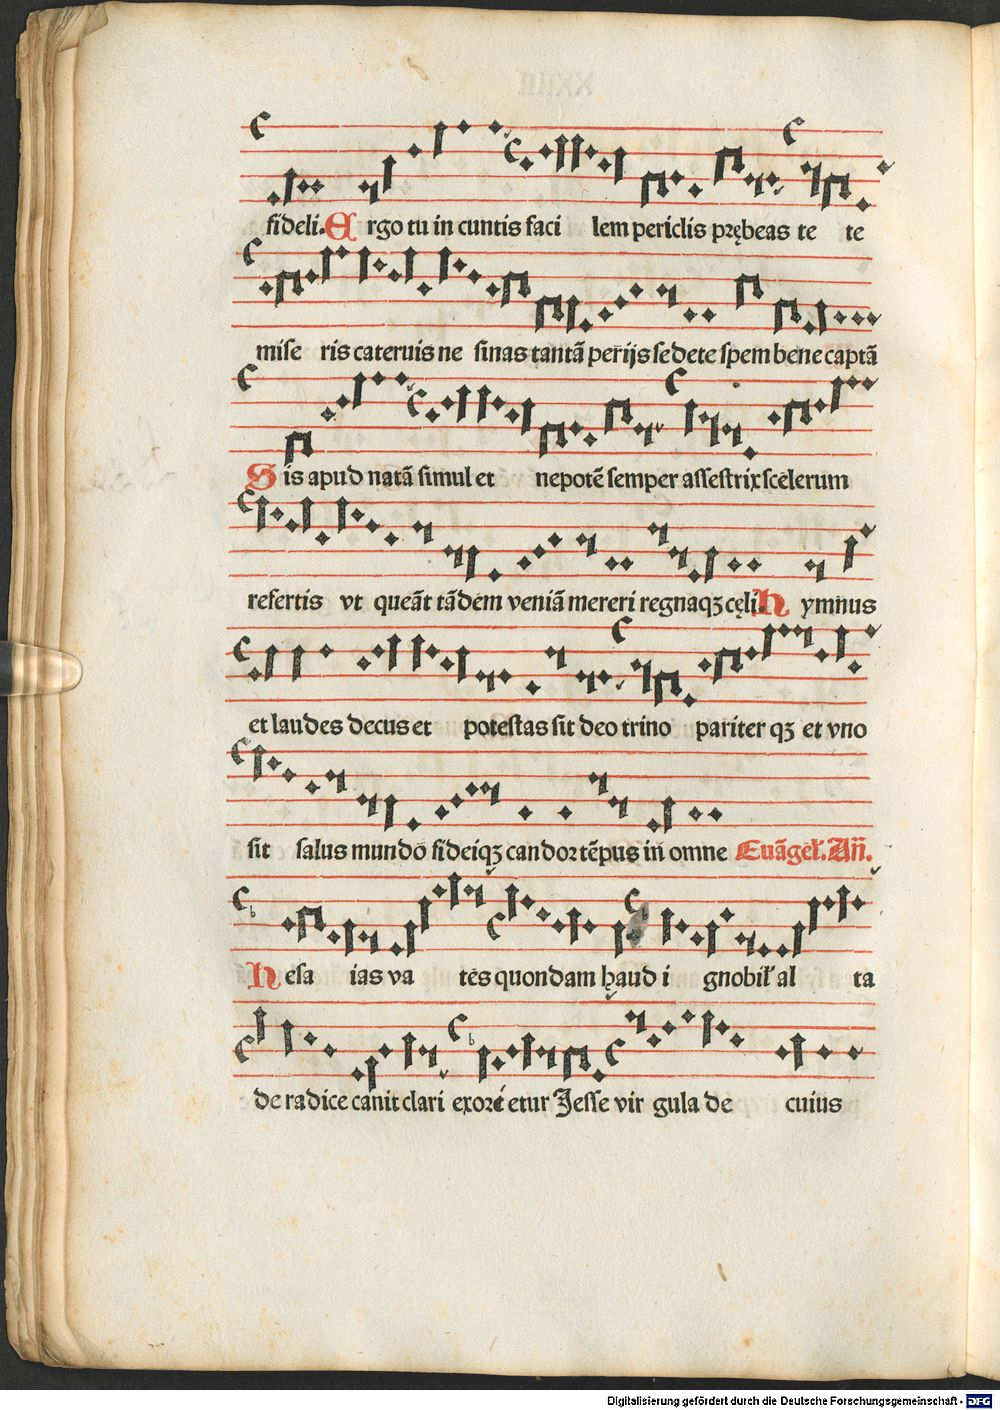 fideli. Ergo tu in cuntis faci lem periclis prębeas te te
mise ris cateruis ne sinas tantā perijs sedete spem bene captā
Sis apud natā simul et nepotē semper assestrix scelerum
refertis vt queāt tādem veniā mereri regnaqꝫ cęli. Hymnus
et laudes decus et potestas sit deo trino pariter qꝫ et vno
sit salus mundo fideiqꝫ candor tēpus in omne Euāgel. An̄.
Hesa ias va tes quondam haud i gnobil al ta
de radice canit clari exori etur Jesse vir gula de cuius
Digitalisierung gefördert durch die Deutsche Forschungsgemeinschaft - DFG